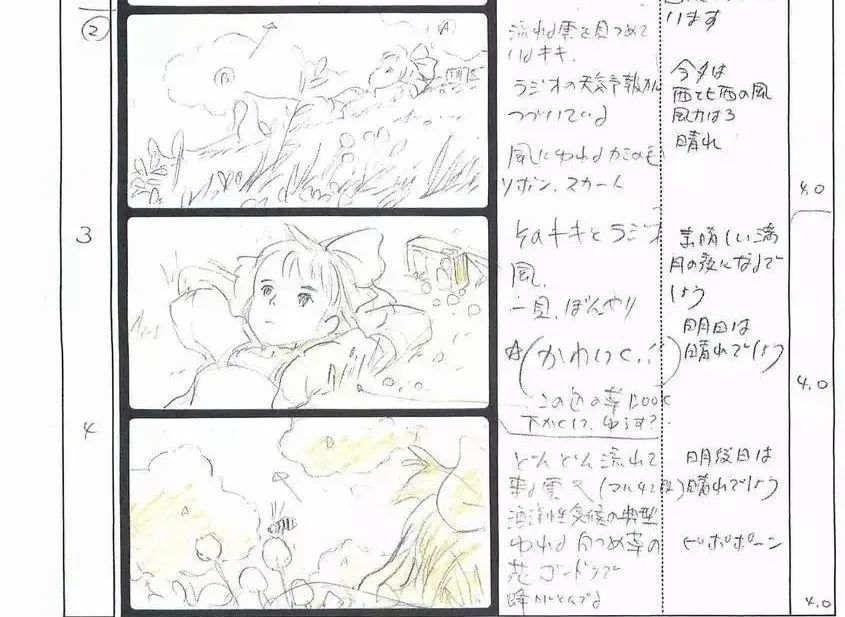 います
②
A
B
流れる雲を見つめて
いるキキ.
ラジオの天気予報が
つづいている
風にゆれるカミの毛
リボン. スカート
今夕は
西と北西の風
風力は3
晴れ
4.0
3
そのキキとラジオ
風.
一見. ぼんやり
(かわいく.!)
この色の草BOOK
下かくし. ゆらす?
素晴しい満
月の夜になるで
しょう
明日は
晴れでしょう
4.0
4
B
A
A
どんどん流れて
来る雲
海洋性気候の典型
ゆれる 白つめ草の
花
蜂がとんでる
明後日は
晴れでしょう
ピポポーン
4.0